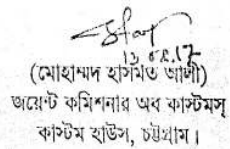 (মোহাম্মদ হাসমত আলী)
জয়েন্ট কমিশনার অব কাস্টমস্
কাস্টম হাউস, চট্টগ্রাম।